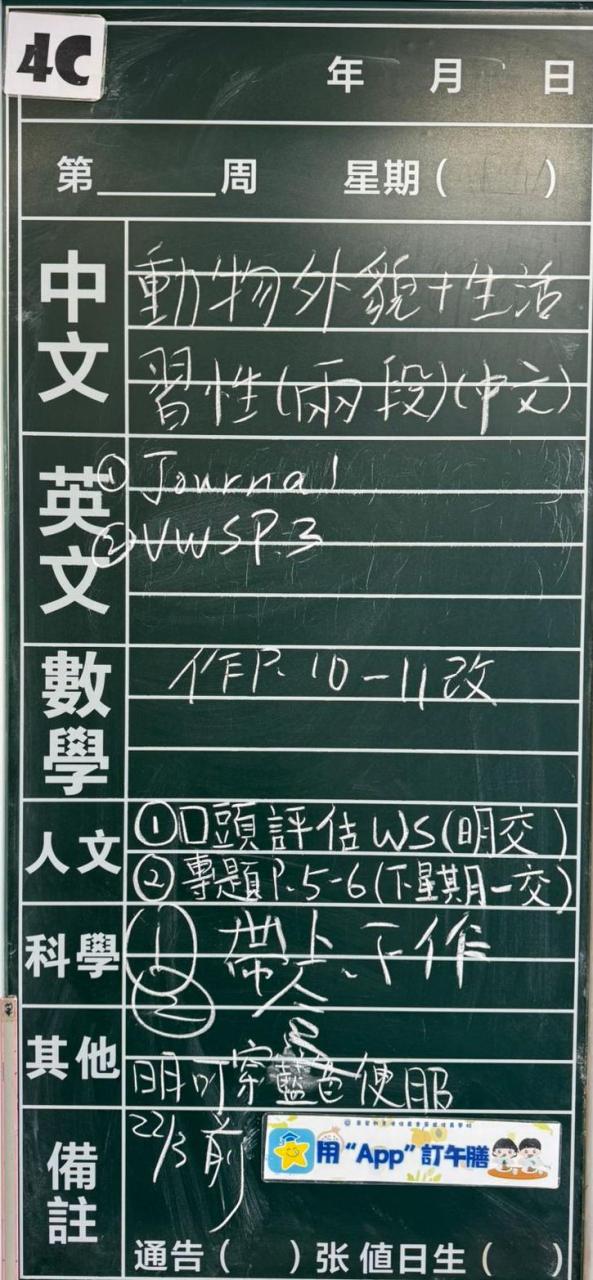 4C
年 月 日
第______周 星期( )
中文 動物外貌+生活
習性(兩段)(中文)
英文 ① Journal
② VWSP.3
數學 作P.10-11改
人文 ①口頭評估WS(明交)
② 專題P.5-6(下星期一交)
科學 ① 帶上、下作
②
其他 明可穿藍色便服
備註 22/3前
用“App”訂午膳
通告( )张 值日生( )